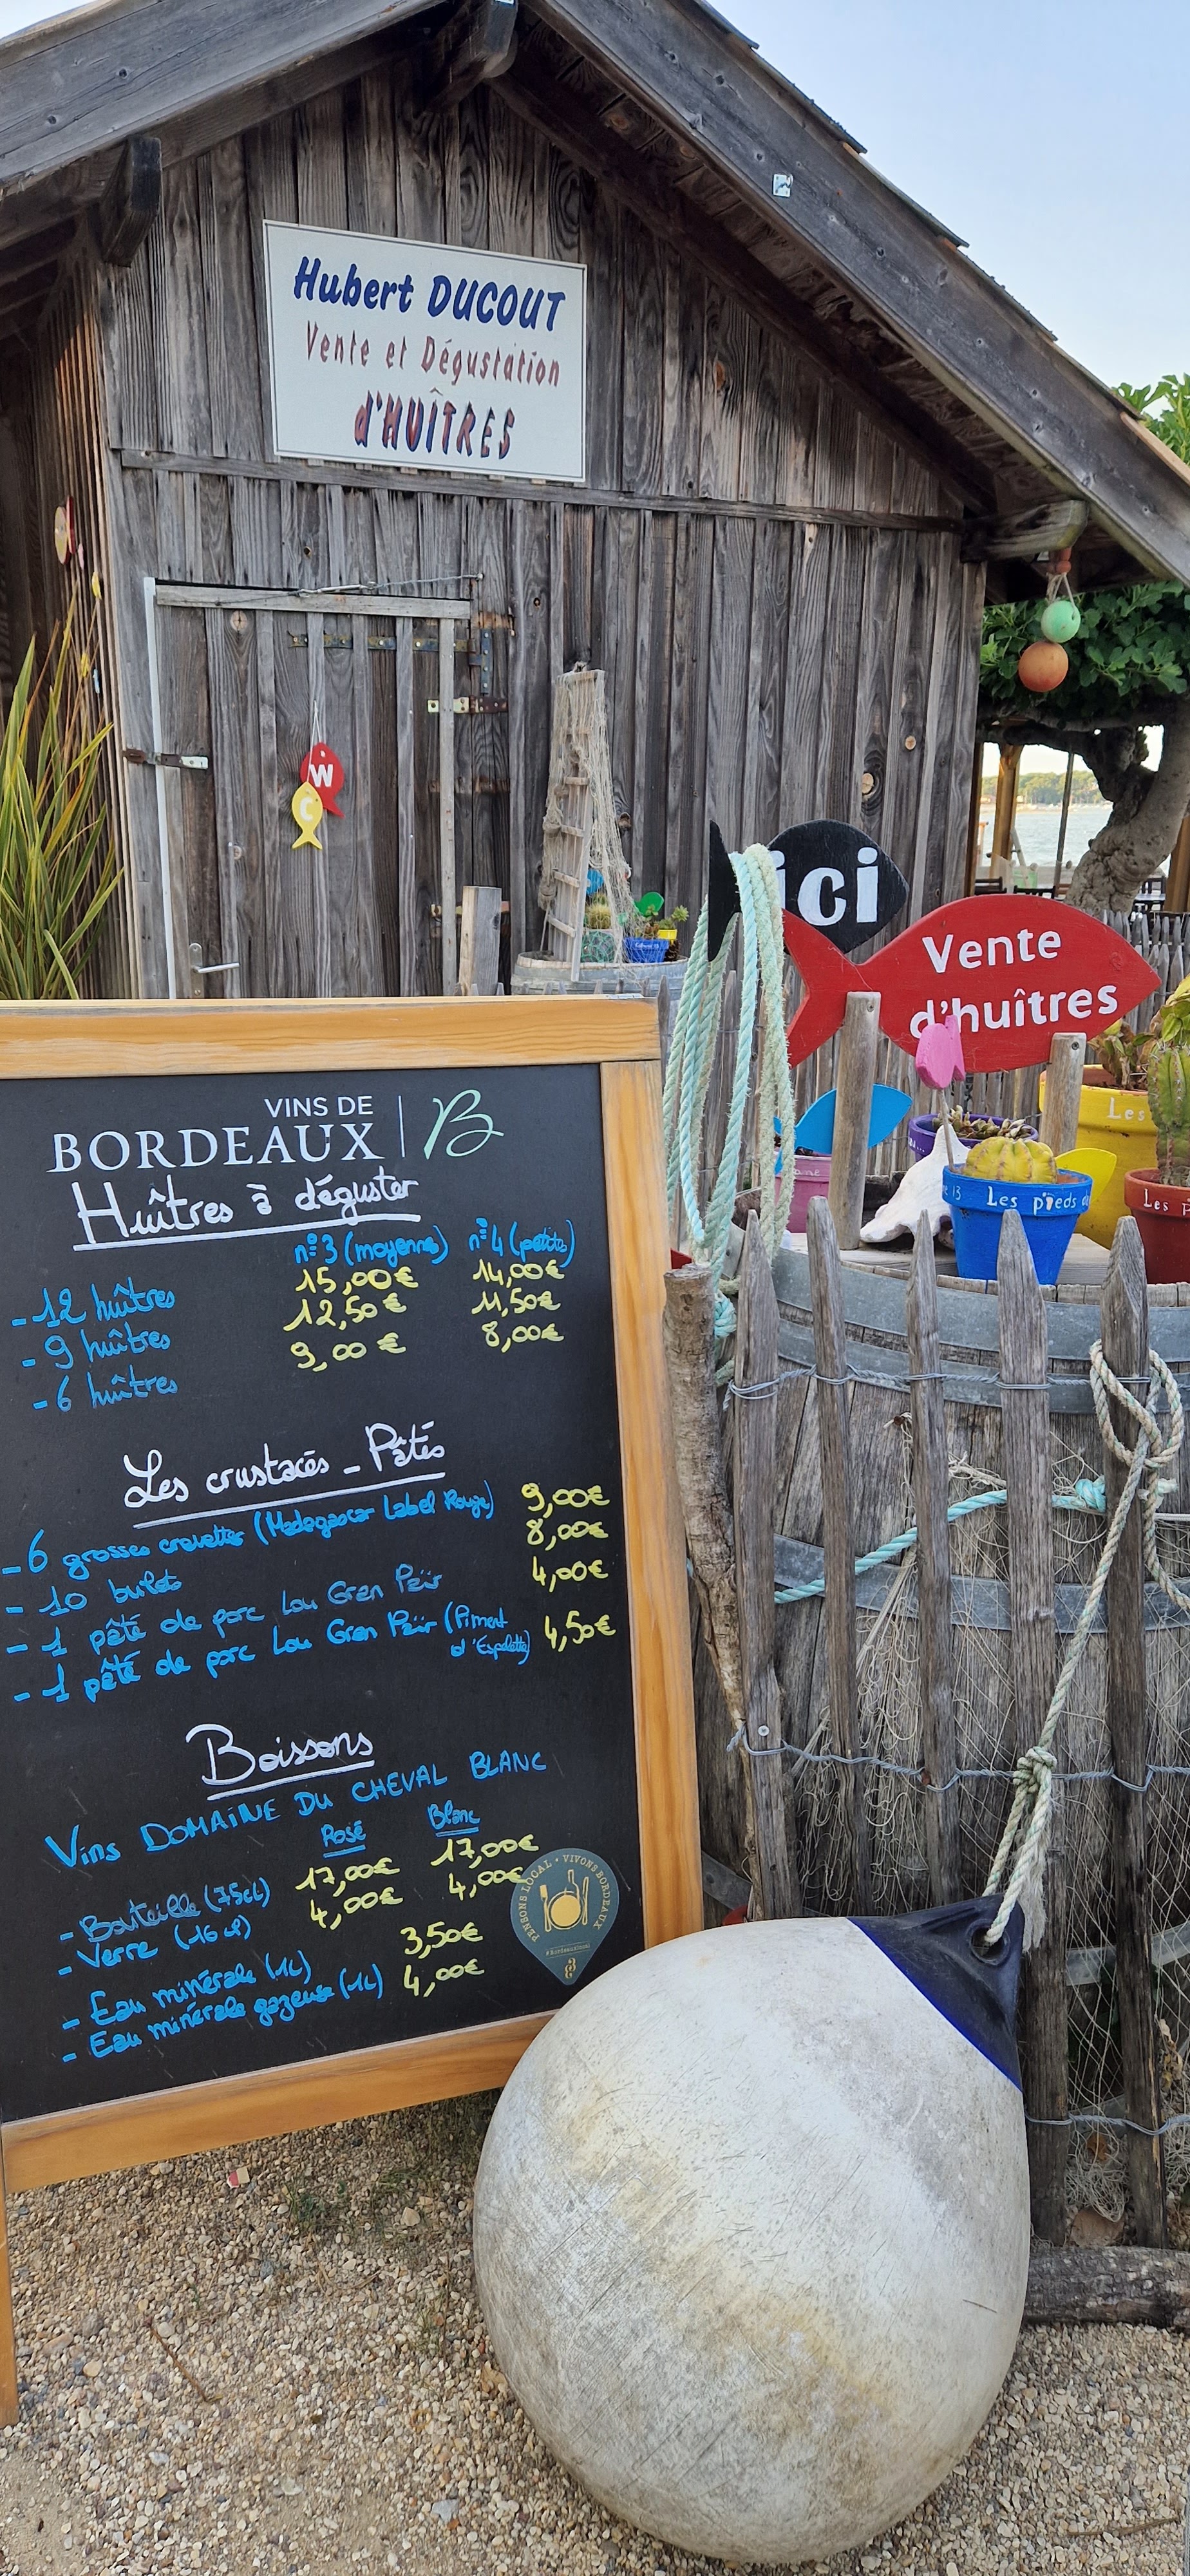 Hubert DUCOUT
Vente et Dégustation
d'HUÎTRES
W
C
ici
Vente
d'huîtres
Les
Les pieds
Les p
VINS DE
BORDEAUX | B
Huîtres à déguster
n°3 (moyenne) n°4 (petite)
- 12 huîtres 15,00€ 14,00€
- 9 huîtres 12,50€ 11,50€
- 6 huîtres 9,00€ 8,00€
Les crustacés - Pâtés
- 6 grosses crevettes (Madagascar Label Rouge) 9,00€
- 10 bulots 8,00€
- 1 pâté de porc Lou Gran Païr 4,00€
- 1 pâté de porc Lou Gran Païr (Piment d'Espelette) 4,50€
Boissons
Vins DOMAINE DU CHEVAL BLANC
Rosé Blanc
- Bouteille (75cl) 17,00€ 17,00€
- Verre (16cl) 4,00€ 4,00€
- Eau minérale (1L) 3,50€
- Eau minérale gazeuse (1L) 4,00€
PENSONS LOCAL • VIVONS BORDEAUX
#BordeauxLocal